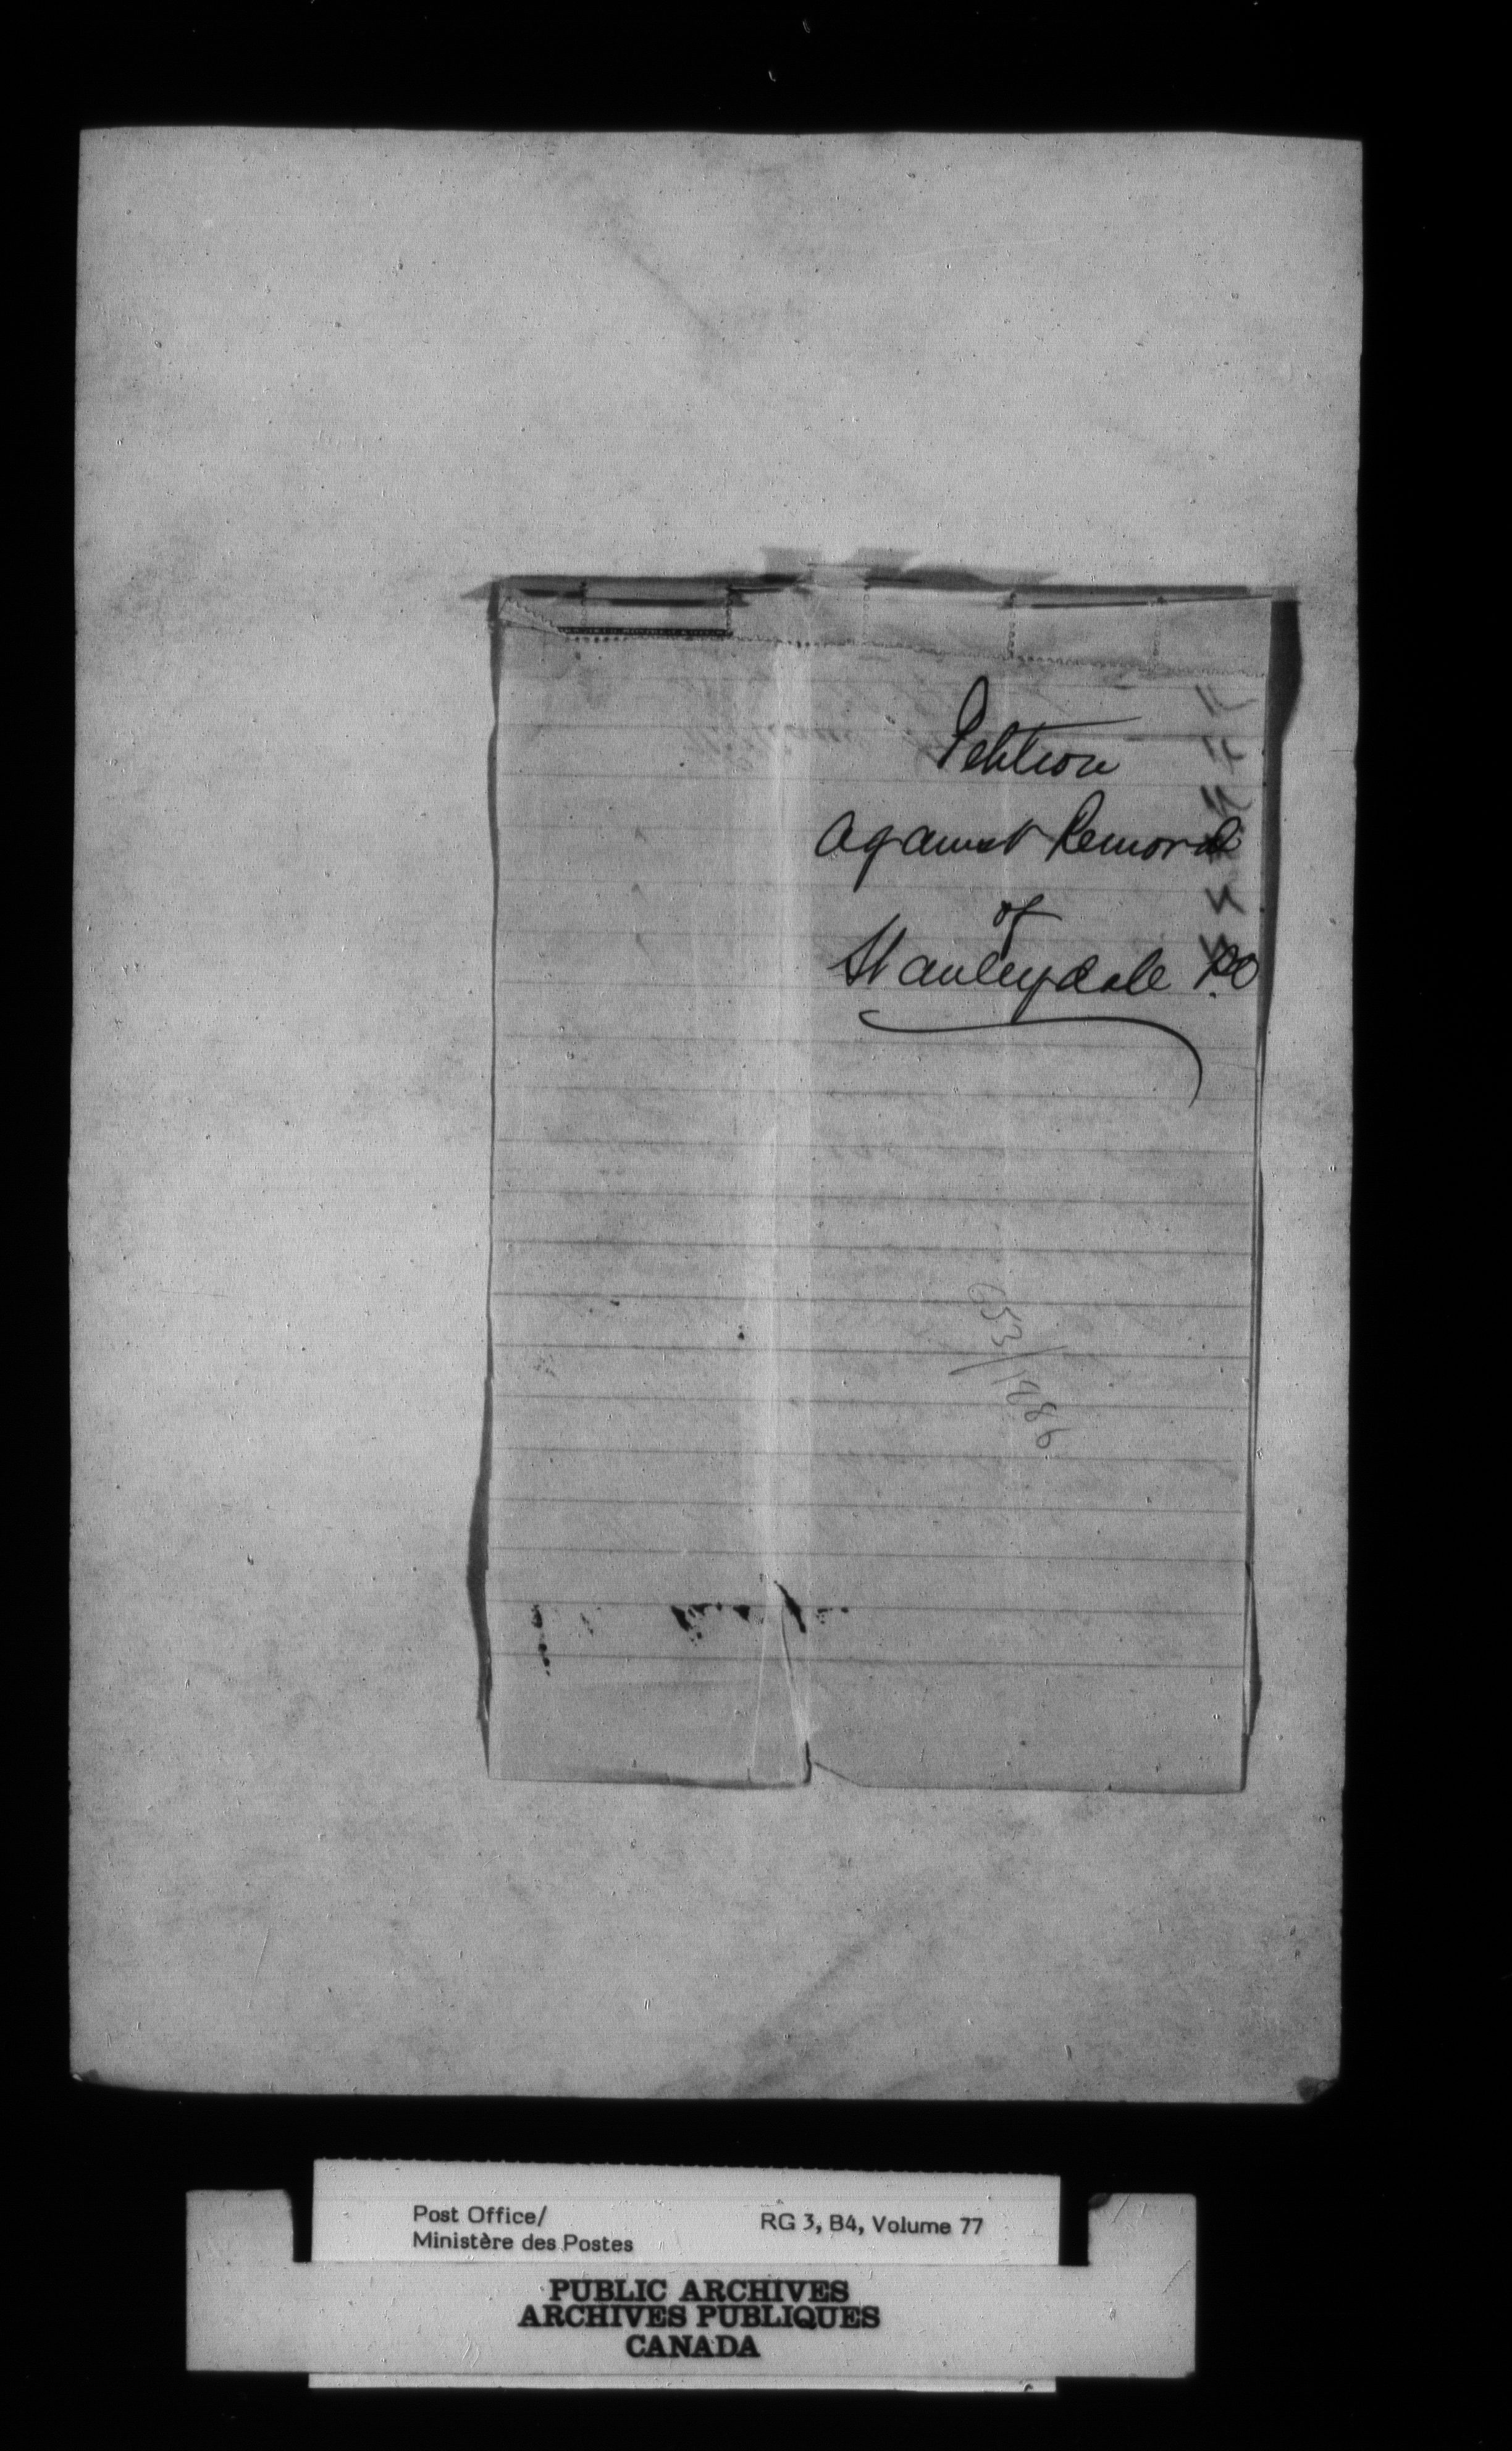 Petition
against Removal
of
Stanleydale P.O
653/1886
Post Office/
Ministère des Postes
RG 3, B4, Volume 77
PUBLIC ARCHIVES
ARCHIVES PUBLIQUES
CANADA